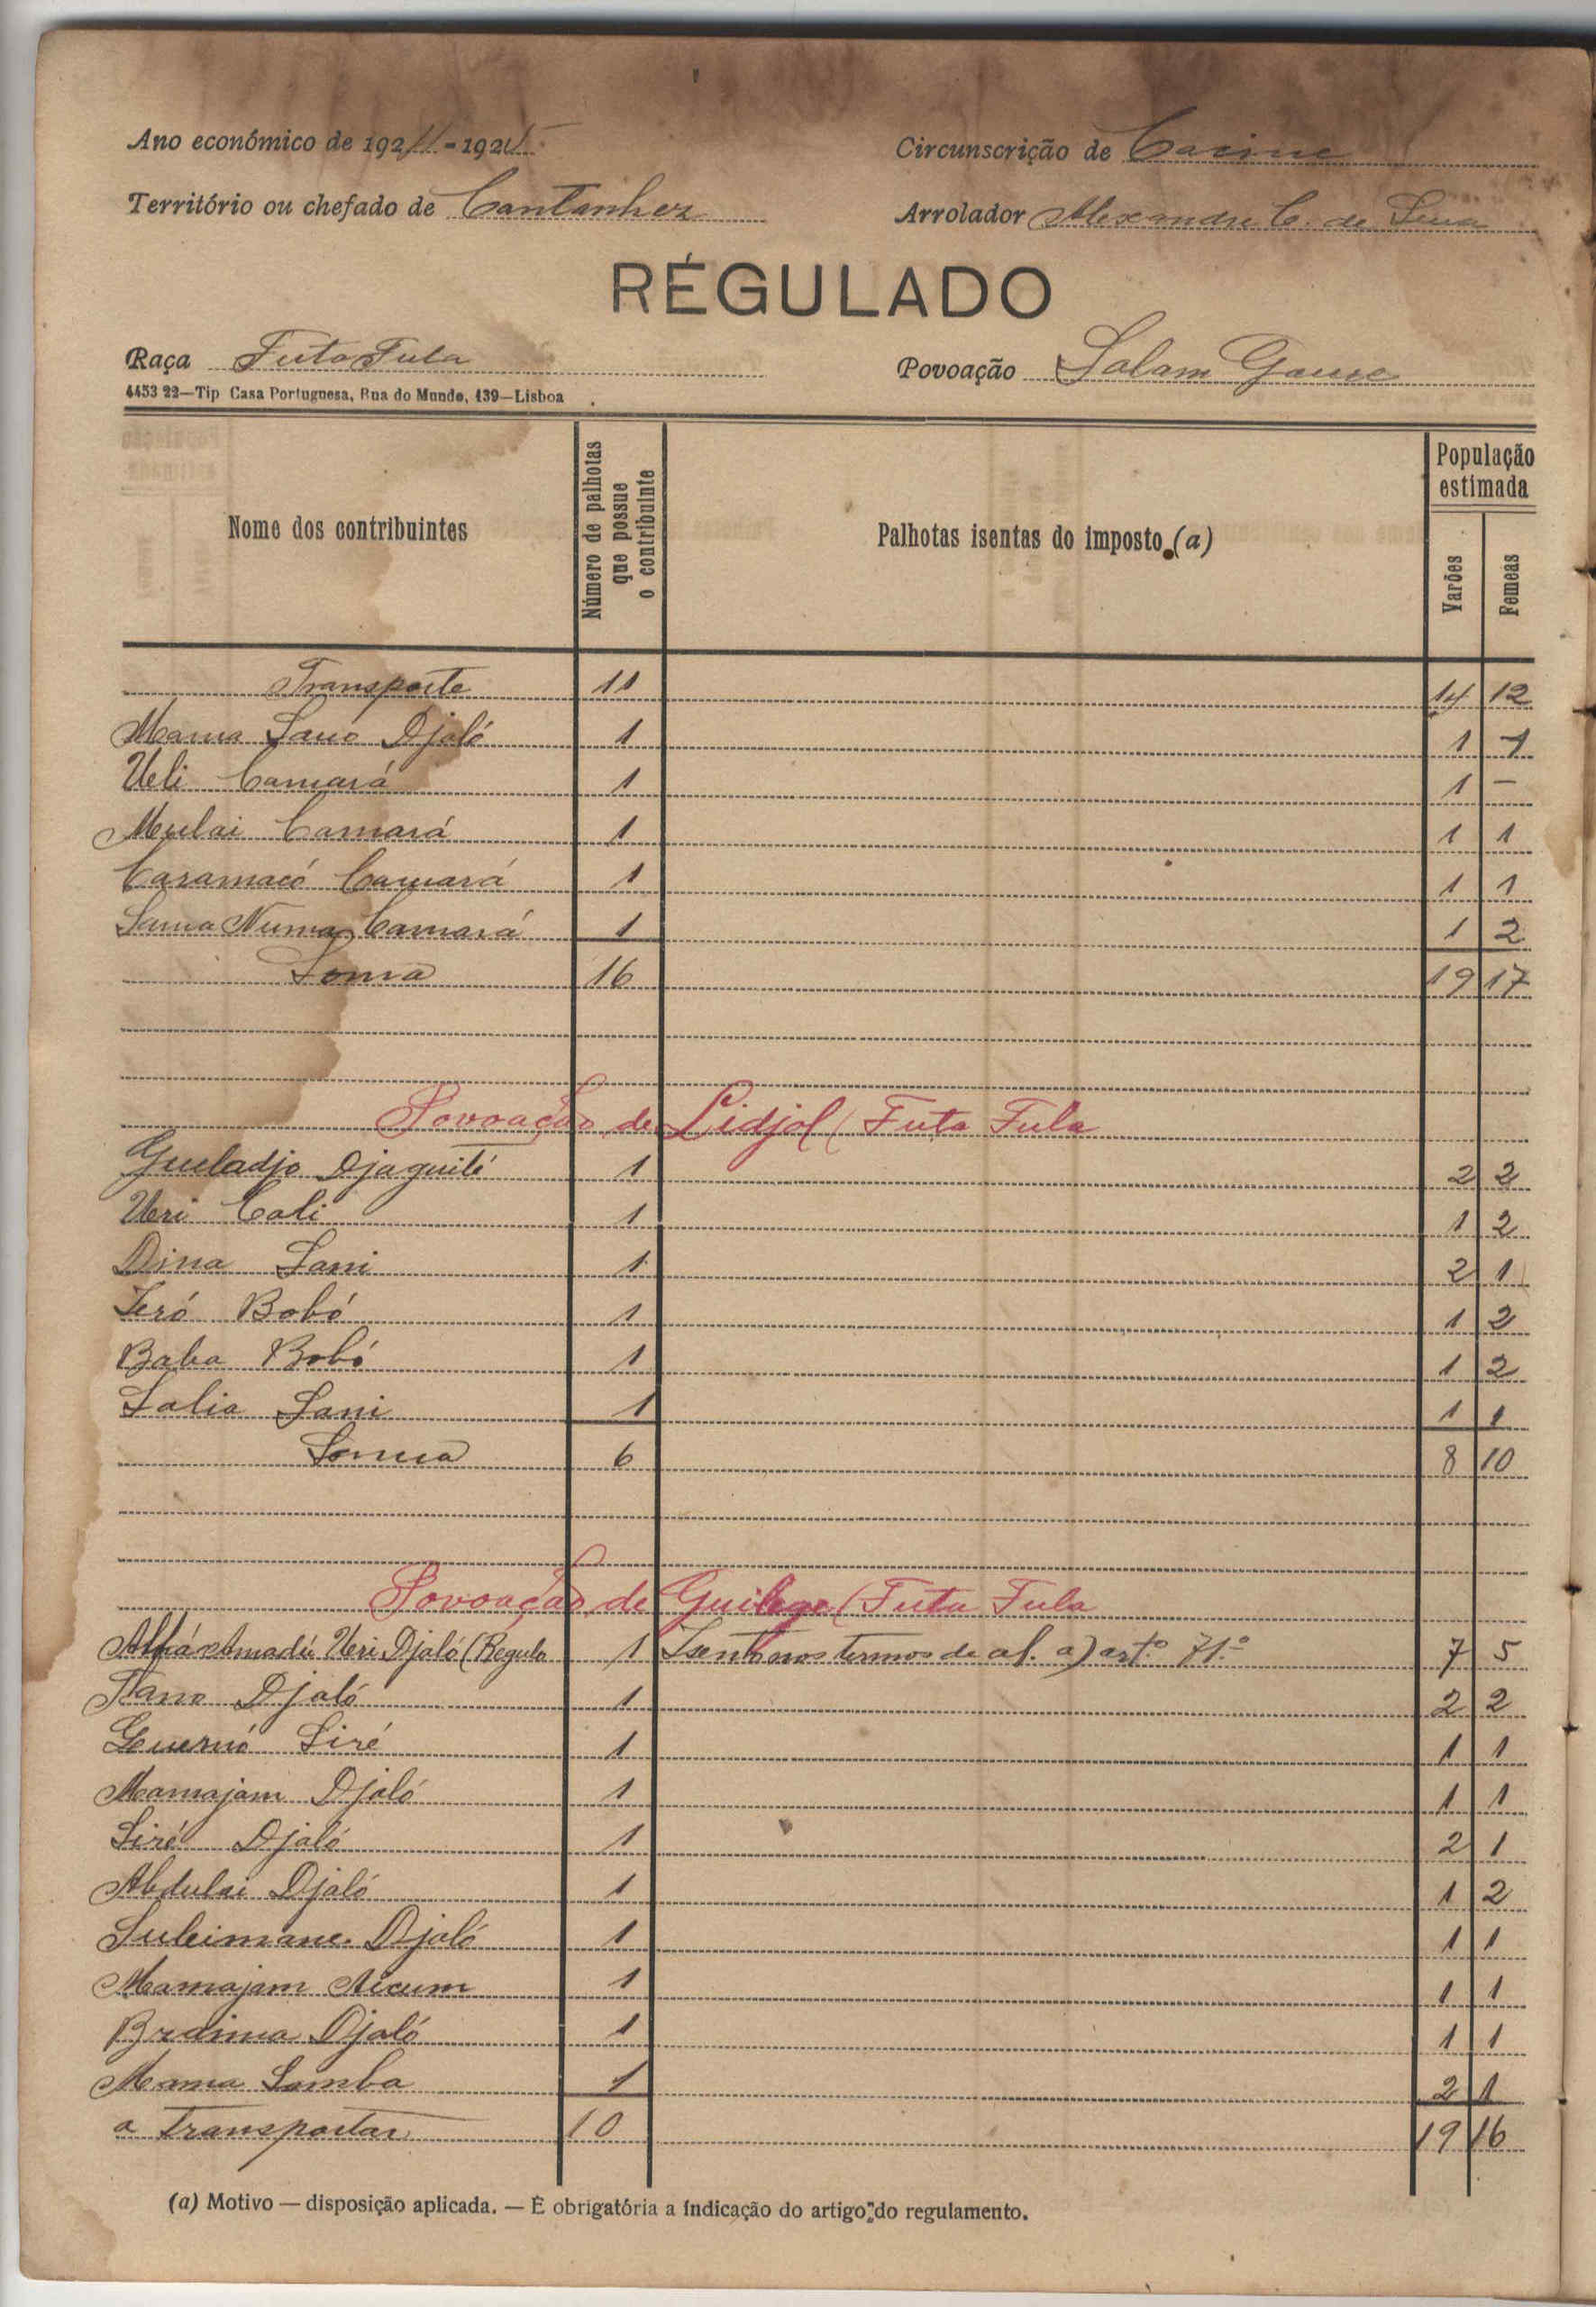 Ano económico de 1924-1925 Circunscrição de Cacine
Território ou chefado de Cantanhez Arrolador Alexandre C. de Sena
RÉGULADO
Raça Futa Fula Povoação Salam Gause
4453 22—Tip Casa Portuguesa, Rua do Mundo, 139—Lisboa
Nome dos contribuintes Número de palhotas que possue o contribuinte Palhotas isentas do imposto (a) População estimada Varões Femeas
Transporte 11 14 12
Mama Sauo Djaló 1 1 1
Ueli Camará 1 1 -
Mulai Camará 1 1 1
Caramacó Camará 1 1 1
Sama Numa Camará 1 1 2
Soma 16 19 17
Povoação de Lidjol (Futa Fula
Gueladjo Djaguité 1 2 2
Ueri Cali 1 1 2
Dina Sani 1 2 1
Seró Bobó 1 1 2
Baba Bobó 1 1 2
Salia Sani 1 1 1
Soma 6 8 10
Povoação de Guilege (Futa Fula
Alfá Amadú Ueri Djaló (Regulo 1 Isento nos termos de al. a) art.º 71.º 7 5
Tano Djaló 1 2 2
Siré 1 1 1
Mamajam Djaló 1 1 1
Siré Djaló 1 2 1
Abdulai Djaló 1 1 2
Suleimane Djaló 1 1 1
Mamajam Aicum 1 1 1
Braima Djaló 1 1 1
Mama Samba 1 2 1
a Transportar 10 19 16
(a) Motivo — disposição aplicada. — É obrigatória a indicação do artigo do regulamento.